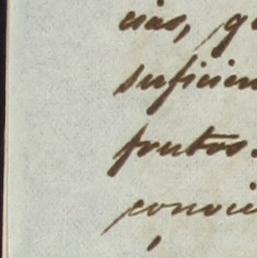 cias, q
suficien
frutos.
convie